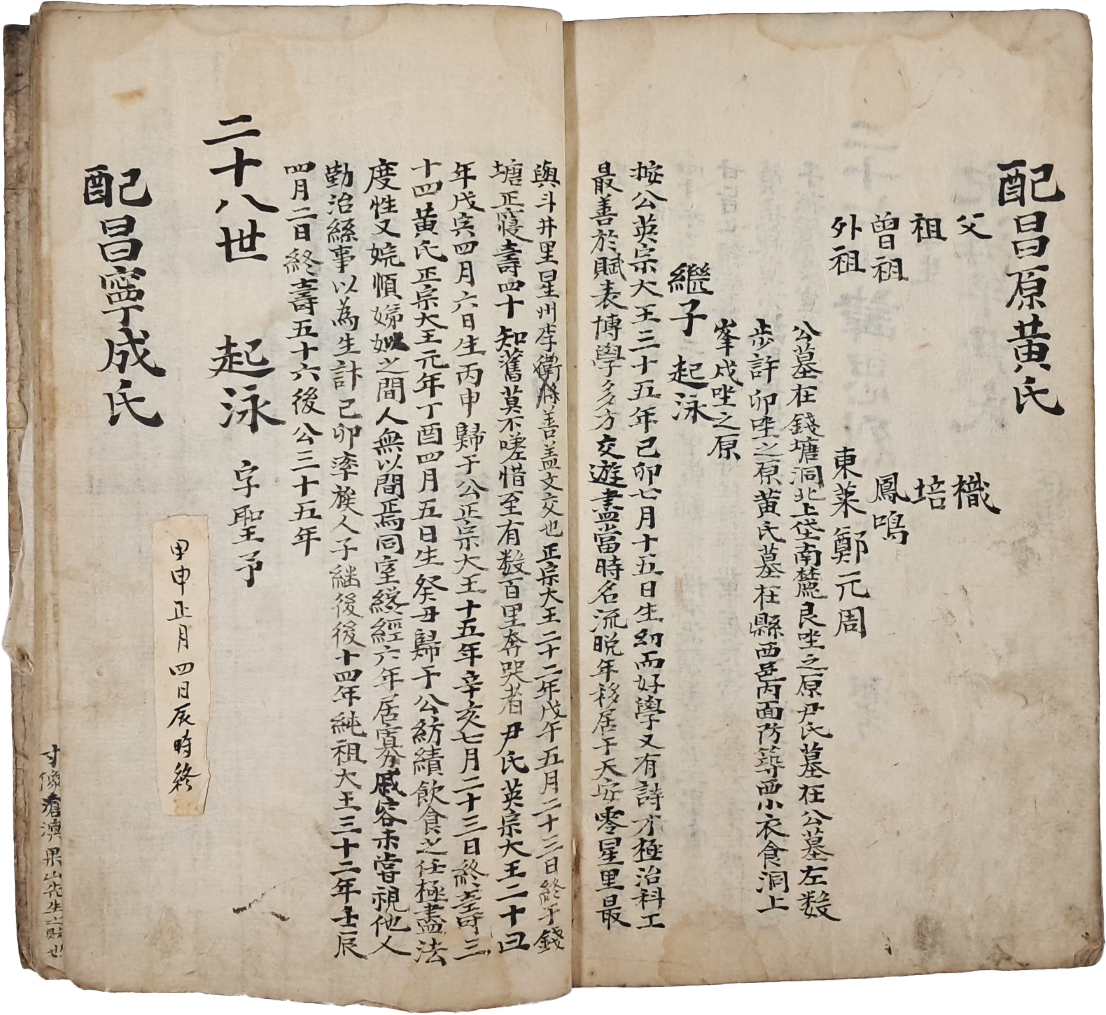 配昌原黄氏
父 檝
祖 培
曽祖 鳳鳴
外祖 東萊鄭元周
公墓在錢塘洞北上岱南麓艮坐之原尹氏墓在公墓左数
步許卯坐之原黄氏墓在縣西邑丙面防築西小衣食洞上
峯戍坐之原
繼子 起泳
按公英宗大王三十五年己卯七月十五日生幼而好學又有詩才極治科工
最善於賦表博學多方交遊盡當時名流晩年移居于天安零星里最
與斗井里星州李衡 善盖文交也正宗大王二十二年戊午五月二十三日終于錢
塘正寢壽四十知舊莫不嗟惜至有数百里奔哭者尹氏英宗大王二十四
年戊寅四月六日生丙申歸于公正宗大王十五年辛亥七月二十三日終壽三
十四黄氏正宗大王元年丁酉四月五日生癸丑歸于公紡績飲食之任極盡法
度性又婉順娣姒之間人無以間焉同室 經六年居寡戚容未嘗視他人
勤治絲事以為生計己卯率族人子継後後十四年純祖大王三十二年壬辰
四月二日終壽五十六後公三十五年
二十八世 起泳 字聖予
甲申正月四日辰時終
配昌寧成氏
果山先生